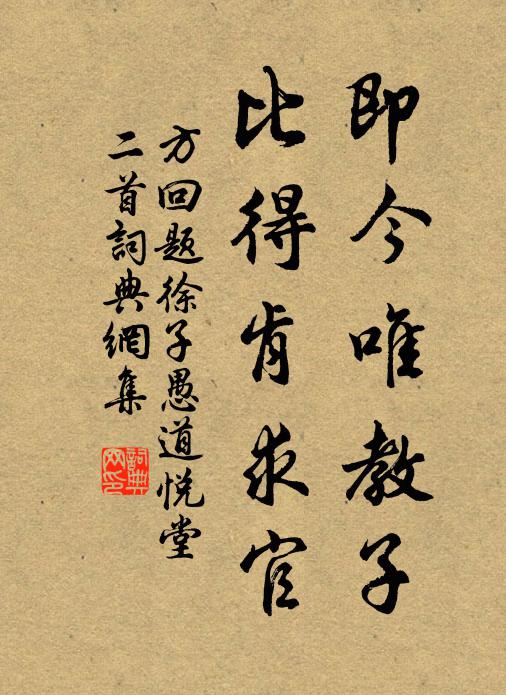 即今唯教子
比得肯求官
方回题徐子愚道悦堂
二首詞典網集
詞典
网印